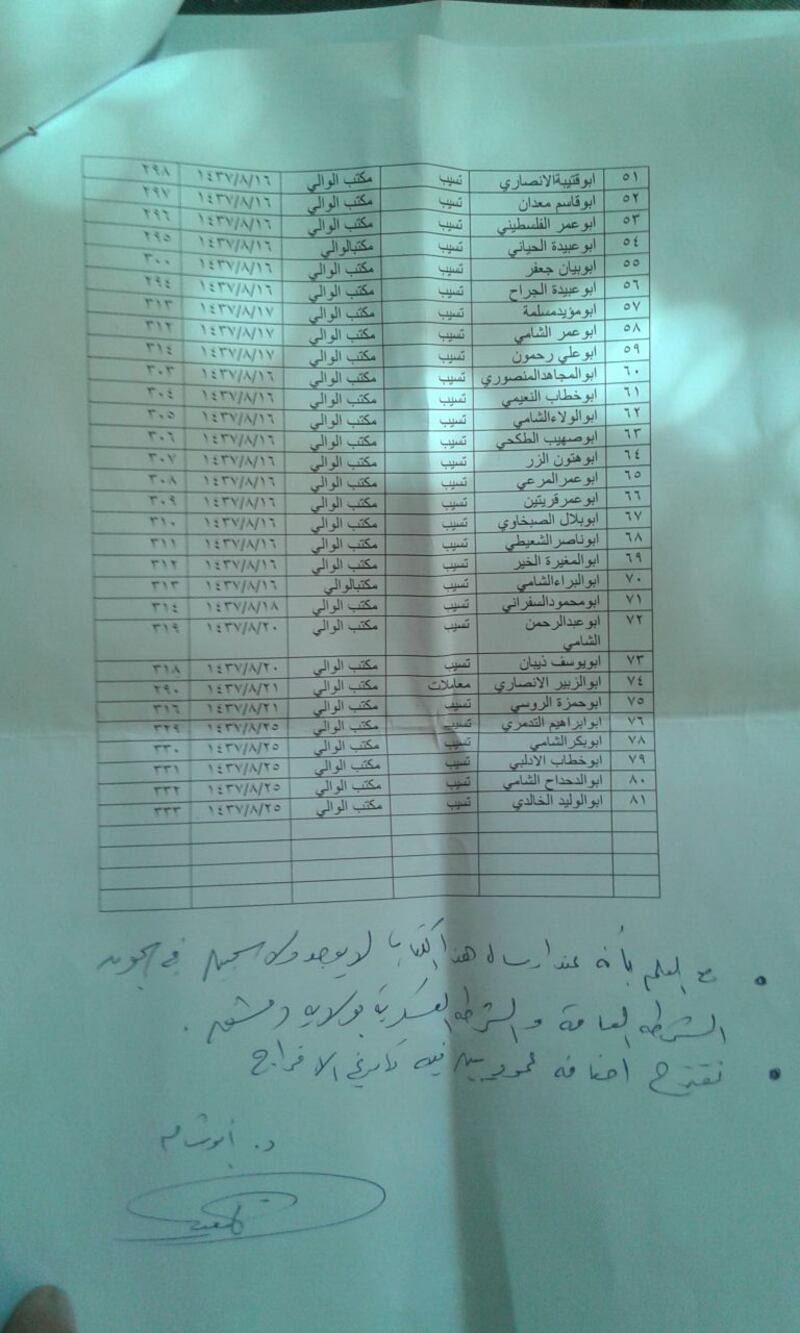 ٥١ ابوقتيبةالانصاري تسيب مكتب الوالي ١٤٣٧/٨/١٦ ٢٩٨
٥٢ ابوقاسم معدان تسيب مكتب الوالي ١٤٣٧/٨/١٦ ٢٩٧
٥٣ ابوعمر الفلسطيني تسيب مكتب الوالي ١٤٣٧/٨/١٦ ٢٩٦
٥٤ ابوعبيدة الحياني تسيب مكتبالوالي ١٤٣٧/٨/١٦ ٢٩٥
٥٥ ابوبيان جعفر تسيب مكتب الوالي ١٤٣٧/٨/١٦ ٣٠٠
٥٦ ابوعبيدة الجراح تسيب مكتب الوالي ١٤٣٧/٨/١٦ ٢٩٤
٥٧ ابومؤيدمسلمة تسيب مكتب الوالي ١٤٣٧/٨/١٧ ٣١٣
٥٨ ابوعمر الشامي تسيب مكتب الوالي ١٤٣٧/٨/١٧ ٣١٢
٥٩ ابوعلي رحمون تسيب مكتب الوالي ١٤٣٧/٨/١٧ ٣١٤
٦٠ ابوالمجاهدالمنصوري تسيب مكتب الوالي ١٤٣٧/٨/١٦ ٣٠٣
٦١ ابوخطاب النعيمي تسيب مكتب الوالي ١٤٣٧/٨/١٦ ٣٠٤
٦٢ ابوالولاءالشامي تسيب مكتب الوالي ١٤٣٧/٨/١٦ ٣٠٥
٦٣ ابوصهيب الطكحي تسيب مكتب الوالي ١٤٣٧/٨/١٦ ٣٠٦
٦٤ ابوهتون الزر تسيب مكتب الوالي ١٤٣٧/٨/١٦ ٣٠٧
٦٥ ابوعمرالمرعي تسيب مكتب الوالي ١٤٣٧/٨/١٦ ٣٠٨
٦٦ ابوعمرقريتين تسيب مكتب الوالي ١٤٣٧/٨/١٦ ٣٠٩
٦٧ ابوبلال الصبخاوي تسيب مكتب الوالي ١٤٣٧/٨/١٦ ٣١٠
٦٨ ابوناصرالشعيطي تسيب مكتب الوالي ١٤٣٧/٨/١٦ ٣١١
٦٩ ابوالمغيرة الخير تسيب مكتب الوالي ١٤٣٧/٨/١٦ ٣١٢
٧٠ ابوالبراءالشامي تسيب مكتبالوالي ١٤٣٧/٨/١٦ ٣١٣
٧١ ابومحمودالسفراني تسيب مكتب الوالي ١٤٣٧/٨/١٨ ٣١٤
٧٢ ابوعبدالرحمن تسيب مكتب الوالي ١٤٣٧/٨/٢٠ ٣١٩
الشامي
٧٣ ابويوسف ذيبان تسيب مكتب الوالي ١٤٣٧/٨/٢٠ ٣١٨
٧٤ ابوالزبير الانصاري معاملات مكتب الوالي ١٤٣٧/٨/٢١ ٢٩٠
٧٥ ابوحمزة الروسي تسيب مكتب الوالي ١٤٣٧/٨/٢١ ٣١٦
٧٦ ابوابراهيم التدمري تسيب مكتب الوالي ١٤٣٧/٨/٢٥ ٣٢٩
٧٨ ابوبكرالشامي تسيب مكتب الوالي ١٤٣٧/٨/٢٥ ٣٣٠
٧٩ ابوخطاب الادلبي تسيب مكتب الوالي ١٤٣٧/٨/٢٥ ٣٣١
٨٠ ابوالدحداح الشامي تسيب مكتب الوالي ١٤٣٧/٨/٢٥ ٣٣٢
٨١ ابوالوليد الخالدي تسيب مكتب الوالي ١٤٣٧/٨/٢٥ ٣٣٣
• مع العلم بأنه عند ارسال هذا الكتاب لا يوجد ولا سجين في سجون
الشرطة العامة والشرطة العسكرية بولاية دمشق .
• نقترح اضافة عمود يبين فيه تاريخ الافراج
د. أبو شام